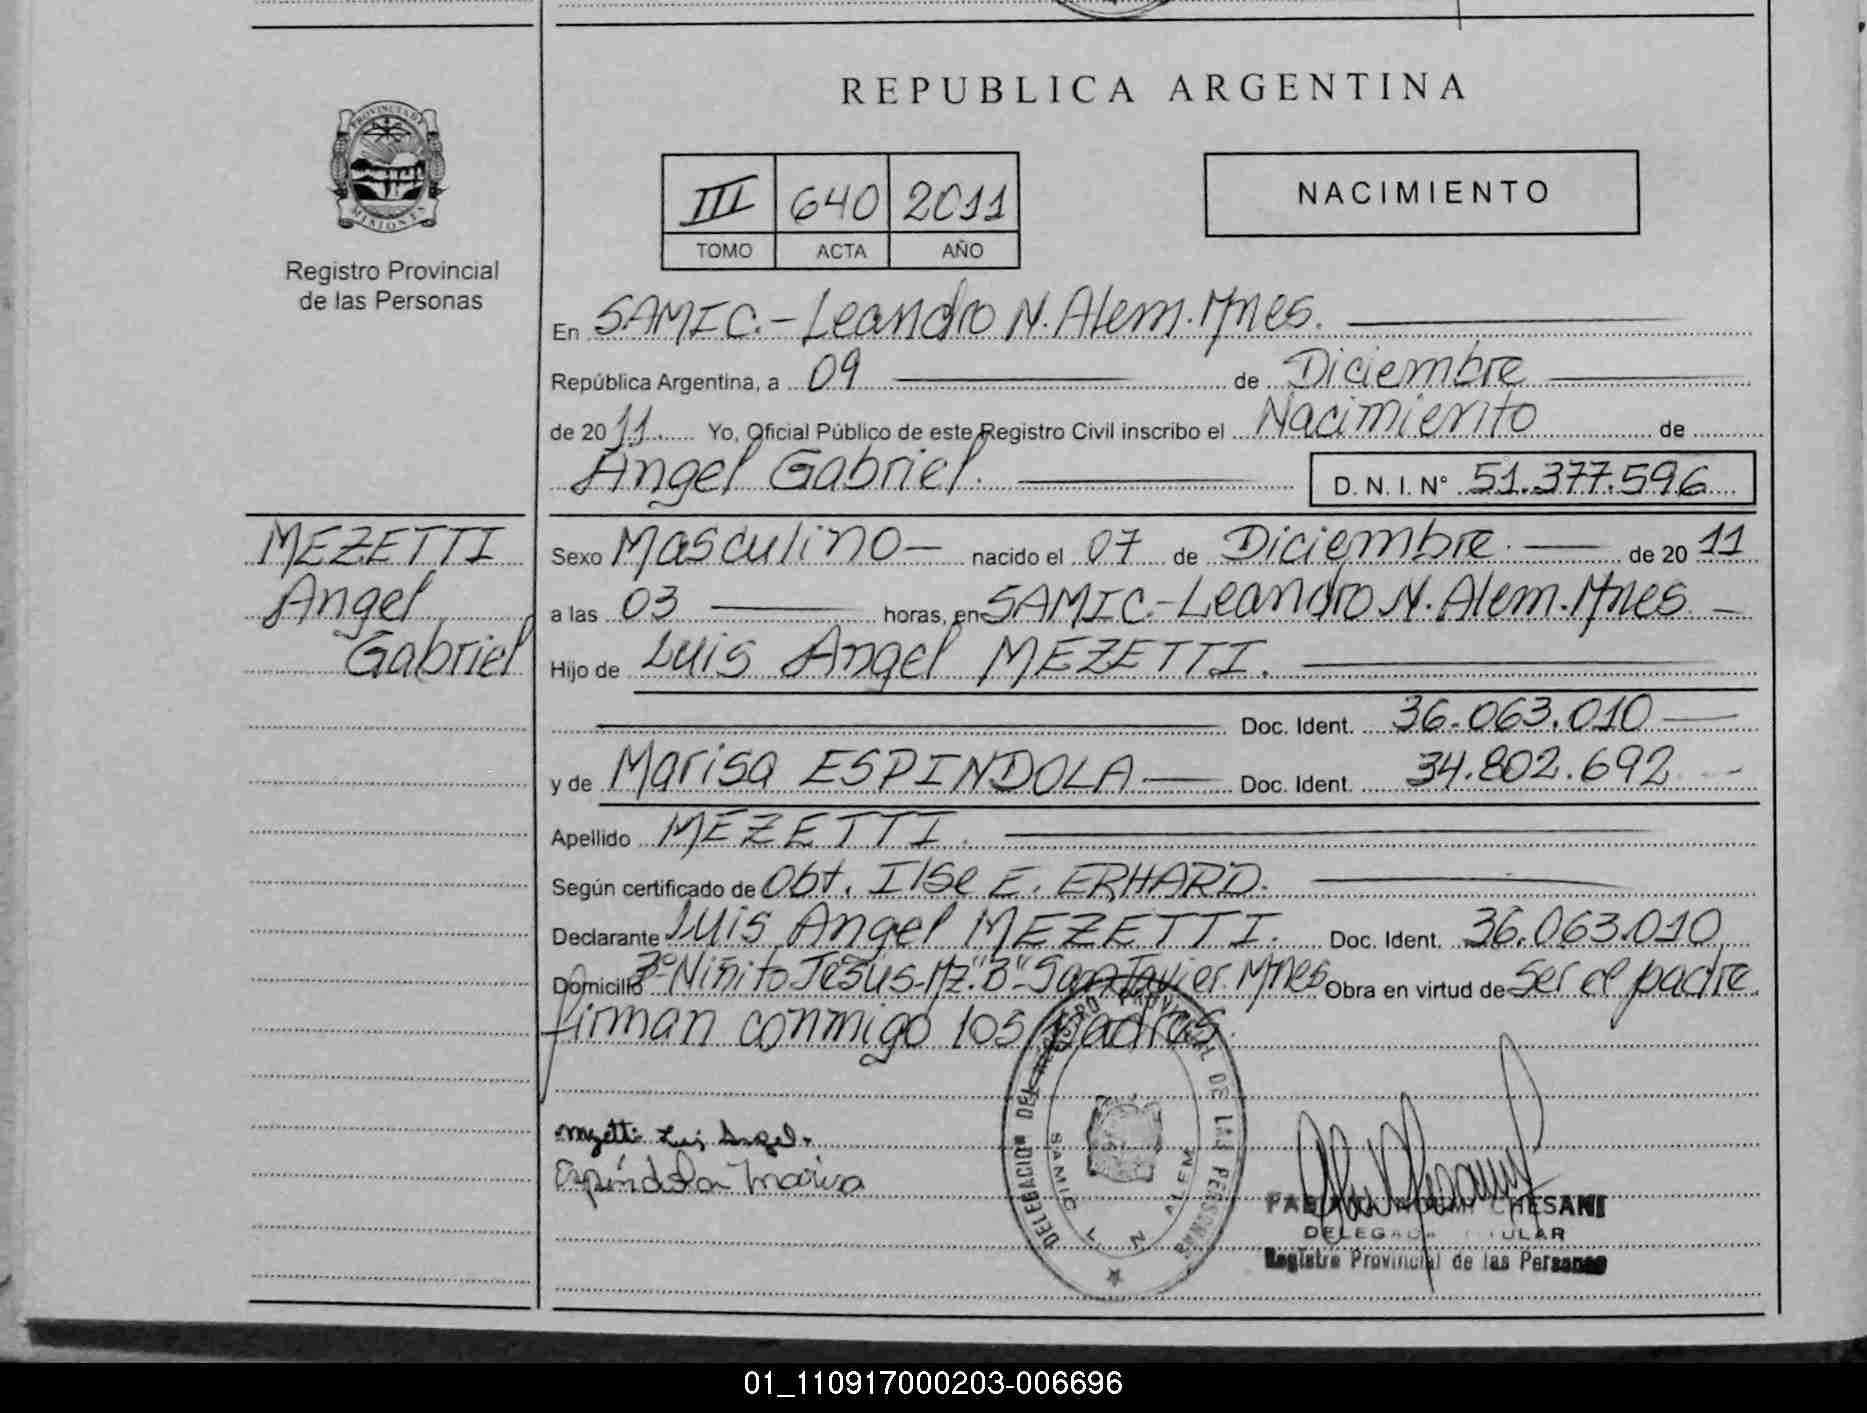 REPUBLICA ARGENTINA
PROVINCIA DE
MISIONES
Registro Provincial
de las Personas
III 640 2011
TOMO ACTA AÑO
NACIMIENTO
En SAMIC.-Leandro N. Alem. Mnes.
República Argentina, a 09 de Diciembre
de 2011. Yo, Oficial Público de este Registro Civil inscribo el Nacimiento de
Angel Gabriel. D. N. I. N° 51.377.596
MEZETTI
Angel
Gabriel
Sexo Masculino nacido el 07 de Diciembre. de 2011
a las 03 horas, en SAMIC.-Leandro N. Alem. Mnes
Hijo de Luis Angel MEZETTI.
Doc. Ident. 36.063.010
y de Marisa ESPINDOLA Doc. Ident. 34.802.692
Apellido MEZETTI.
Según certificado de Obt. Ilse E. ERHARD.
Declarante Luis Angel MEZETTI. Doc. Ident. 36.063.010
Domicilio Bº Niñito Jesús-Mz."B"-San Javier. Mnes Obra en virtud de Ser el padre.
firman conmigo los Padres.
Mezetti Luis Angel.
Espíndola Marisa
DELEGACION DEL REGISTRO PROVINCIAL DE LAS PERSONAS
SAMIC L. N. ALEM
CHESANI
DELEGADA TITULAR
Registro Provincial de las Personas
01_110917000203-006696